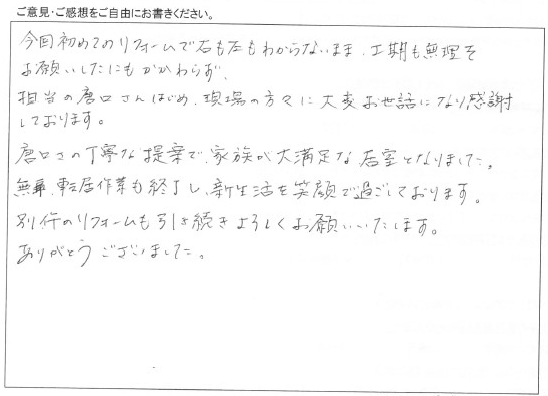 ご意見・ご感想をご自由にお書きください。
今回初めてのリフォームで右も左もわからないまま、工期も無理を
お願いしたにもかかわらず、
担当の唐口さんはじめ、現場の方々に大変お世話になり感謝
しております。
唐口さんの丁寧な提案で、家族が大満足な居室となりました。
無事、転居作業も終了し、新生活を笑顔で過ごしております。
別件のリフォームも引き続きよろしくお願いいたします。
ありがとうございました。